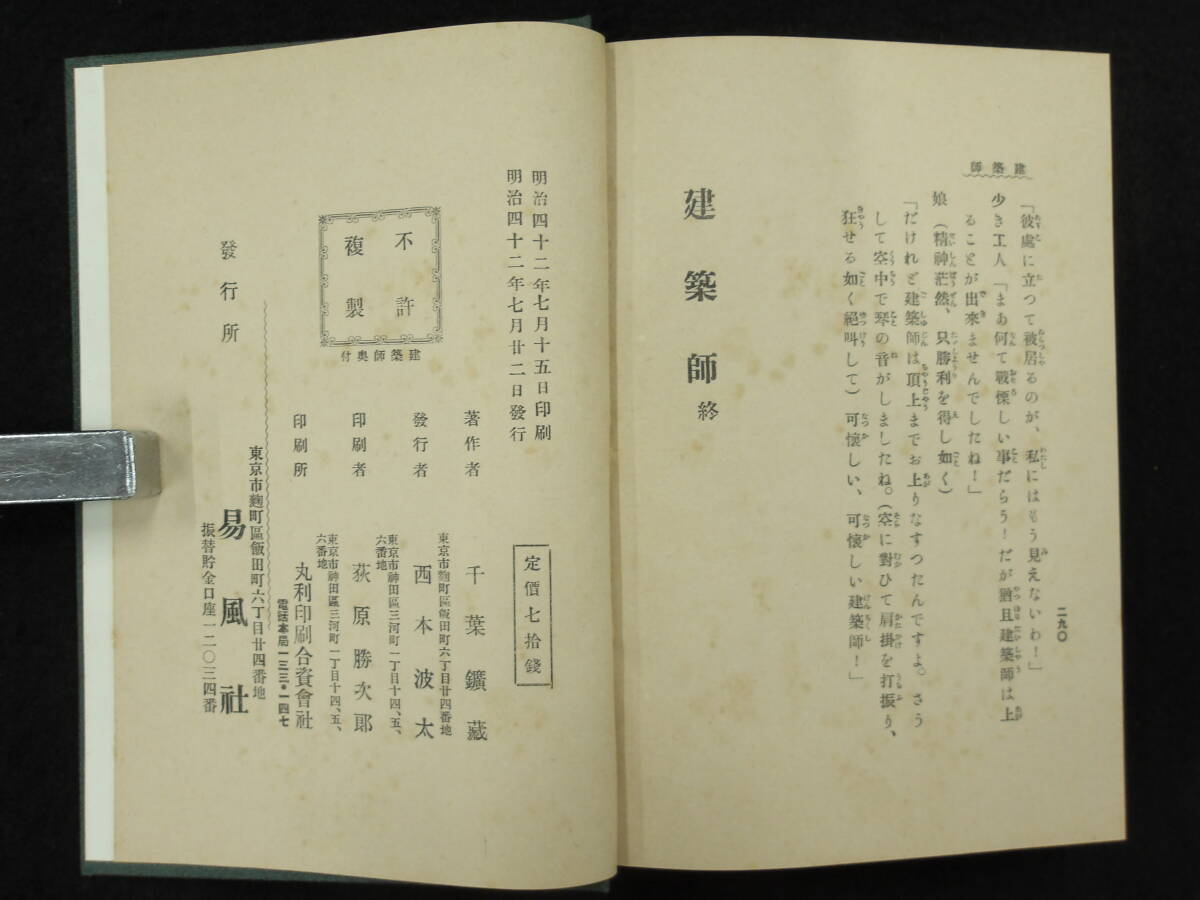 建築師
二九〇
「彼處に立つて被居るのが、私にはもう見えないわ！」
少き工人「まあ何て戰慄しい事だらう！だが猶且建築師は上
ることが出來ませんでしたね！」
娘（精神茫然、只勝利を得し如く）
「だけれど建築師は頂上までお上りなすつたんですよ。さう
して空中で琴の音がしましたね。（空に對ひて肩掛を打振り、
狂せる如く絕叫して）可懷しい、可懷しい建築師！」
建築師 終
明治四十二年七月十五日印刷
明治四十二年七月廿二日發行
定價七拾錢
不許
複製
建築師奥付
著作者 千葉鑛藏
東京市麴町區飯田町六丁目廿四番地
發行者 西本波太
東京市神田區三河町一丁目十四、五、
六番地
印刷者 荻原勝次郎
東京市神田區三河町一丁目十四、五、
六番地
印刷所 丸利印刷合資會社
電話本局一三三・一四七
東京市麴町區飯田町六丁目廿四番地
發行所 易風社
振替貯金口座一二〇三四番